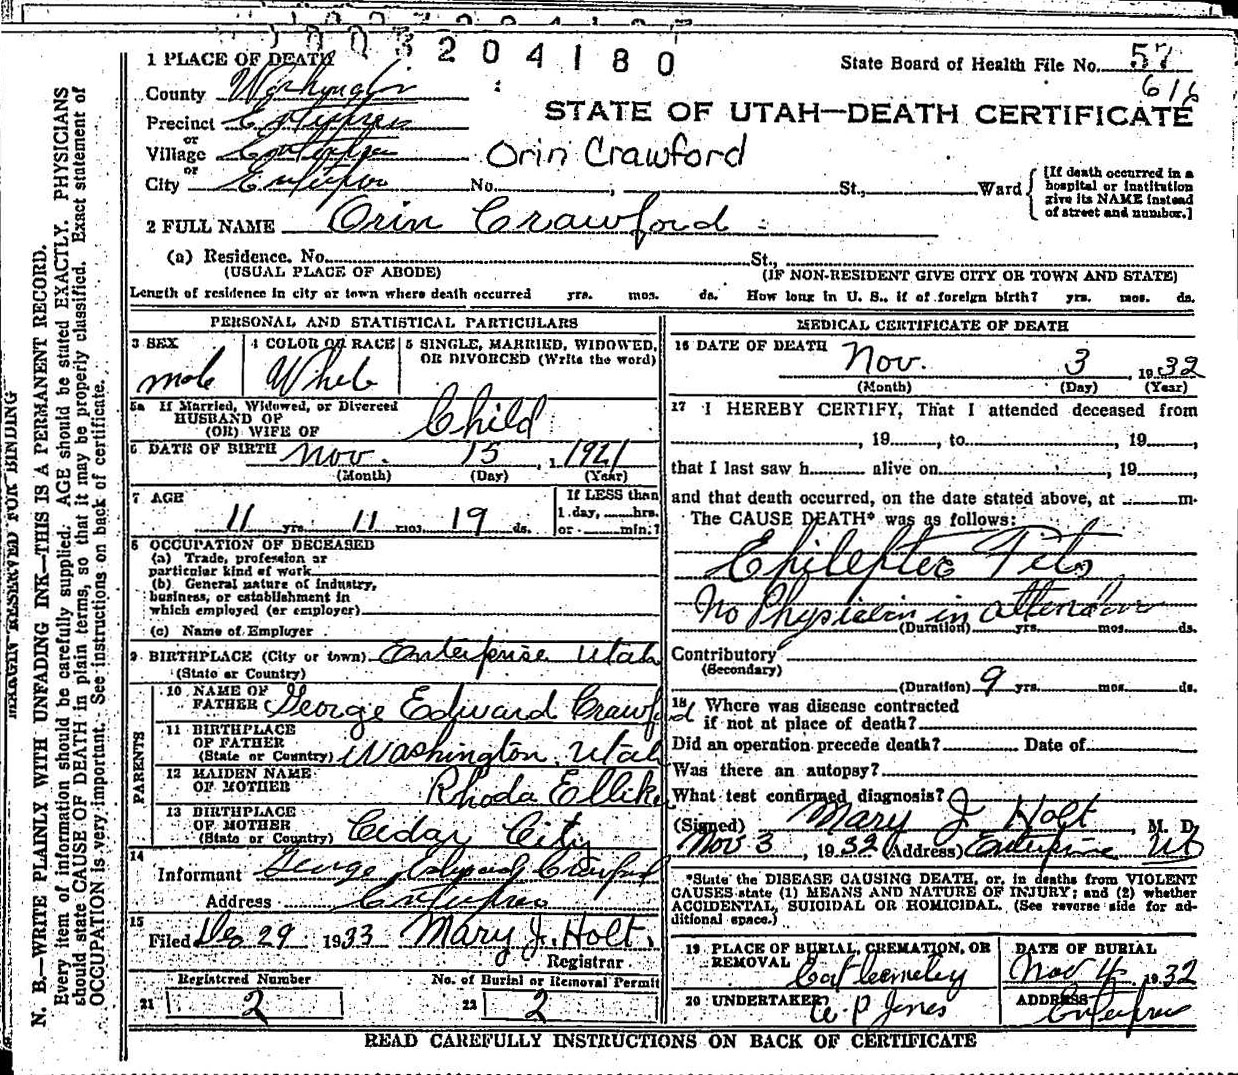 1003204180
State Board of Health File No. 57
616
STATE OF UTAH—DEATH CERTIFICATE
1 PLACE OF DEATH
County Washington
Precinct Enterprise
or
Village Enterprise
or
City Enterprise No. , St., Ward
[If death occurred in a
hospital or institution
give its NAME instead
of street and number.]
Orin Crawford
2 FULL NAME Orin Crawford
(a) Residence. No. St.,
(USUAL PLACE OF ABODE) (IF NON-RESIDENT GIVE CITY OR TOWN AND STATE)
Length of residence in city or town where death occurred yrs. mos. ds. How long in U. S., if of foreign birth? yrs. mos. ds.
PERSONAL AND STATISTICAL PARTICULARS
3 SEX
male
4 COLOR OR RACE
White
5 SINGLE, MARRIED, WIDOWED,
OR DIVORCED (Write the word)
Child
5a If Married, Widowed, or Divorced
HUSBAND OF
(OR) WIFE OF
6 DATE OF BIRTH Nov. 15, 1921
(Month) (Day) (Year)
7 AGE
11 yrs. 11 mos. 19 ds.
If LESS than
1 day, hrs.
or min.?
8 OCCUPATION OF DECEASED
(a) Trade, profession or
particular kind of work
(b) General nature of industry,
business, or establishment in
which employed (or employer)
(c) Name of Employer
9 BIRTHPLACE (City or town) Enterprise Utah
(State or Country)
PARENTS
10 NAME OF
FATHER George Edward Crawford
11 BIRTHPLACE
OF FATHER
(State or Country) Washington, Utah
12 MAIDEN NAME
OF MOTHER Rhoda Elliker
13 BIRTHPLACE
OF MOTHER
(State or Country) Cedar City
14
Informant George Edward Crawford
Address Enterprise
15
Filed Dec 29 1933 Mary J. Holt.
Registrar
Registered Number
21 2
No. of Burial or Removal Permit
22 2
MEDICAL CERTIFICATE OF DEATH
16 DATE OF DEATH Nov. 3, 1932
(Month) (Day) (Year)
17 I HEREBY CERTIFY, That I attended deceased from
, 19 , to , 19 ,
that I last saw h alive on , 19 ,
and that death occurred, on the date stated above, at m.
The CAUSE DEATH* was as follows:
Epileptic Fits
No Physician in attendance
(Duration) yrs. mos. ds.
Contributory
(Secondary)
(Duration) 9 yrs. mos. ds.
18 Where was disease contracted
if not at place of death?
Did an operation precede death? Date of
Was there an autopsy?
What test confirmed diagnosis?
(Signed) Mary J Holt, M. D.
Nov 3, 1932 (Address) Enterprise Ut
*State the DISEASE CAUSING DEATH, or, in deaths from VIOLENT
CAUSES state (1) MEANS AND NATURE OF INJURY; and (2) whether
ACCIDENTAL, SUICIDAL OR HOMICIDAL. (See reverse side for ad-
ditional space.)
19 PLACE OF BURIAL, CREMATION, OR
REMOVAL
DATE OF BURIAL
Nov 4 1932
20 UNDERTAKER
W P Jones
ADDRESS
Enterprise
READ CAREFULLY INSTRUCTIONS ON BACK OF CERTIFICATE
MARGIN RESERVED FOR BINDING
N. B.—WRITE PLAINLY WITH UNFADING INK—THIS IS A PERMANENT RECORD.
Every item of information should be carefully supplied. AGE should be stated EXACTLY. PHYSICIANS
should state CAUSE OF DEATH in plain terms, so that it may be properly classified. Exact statement of
OCCUPATION is very important. See instructions on back of certificate.